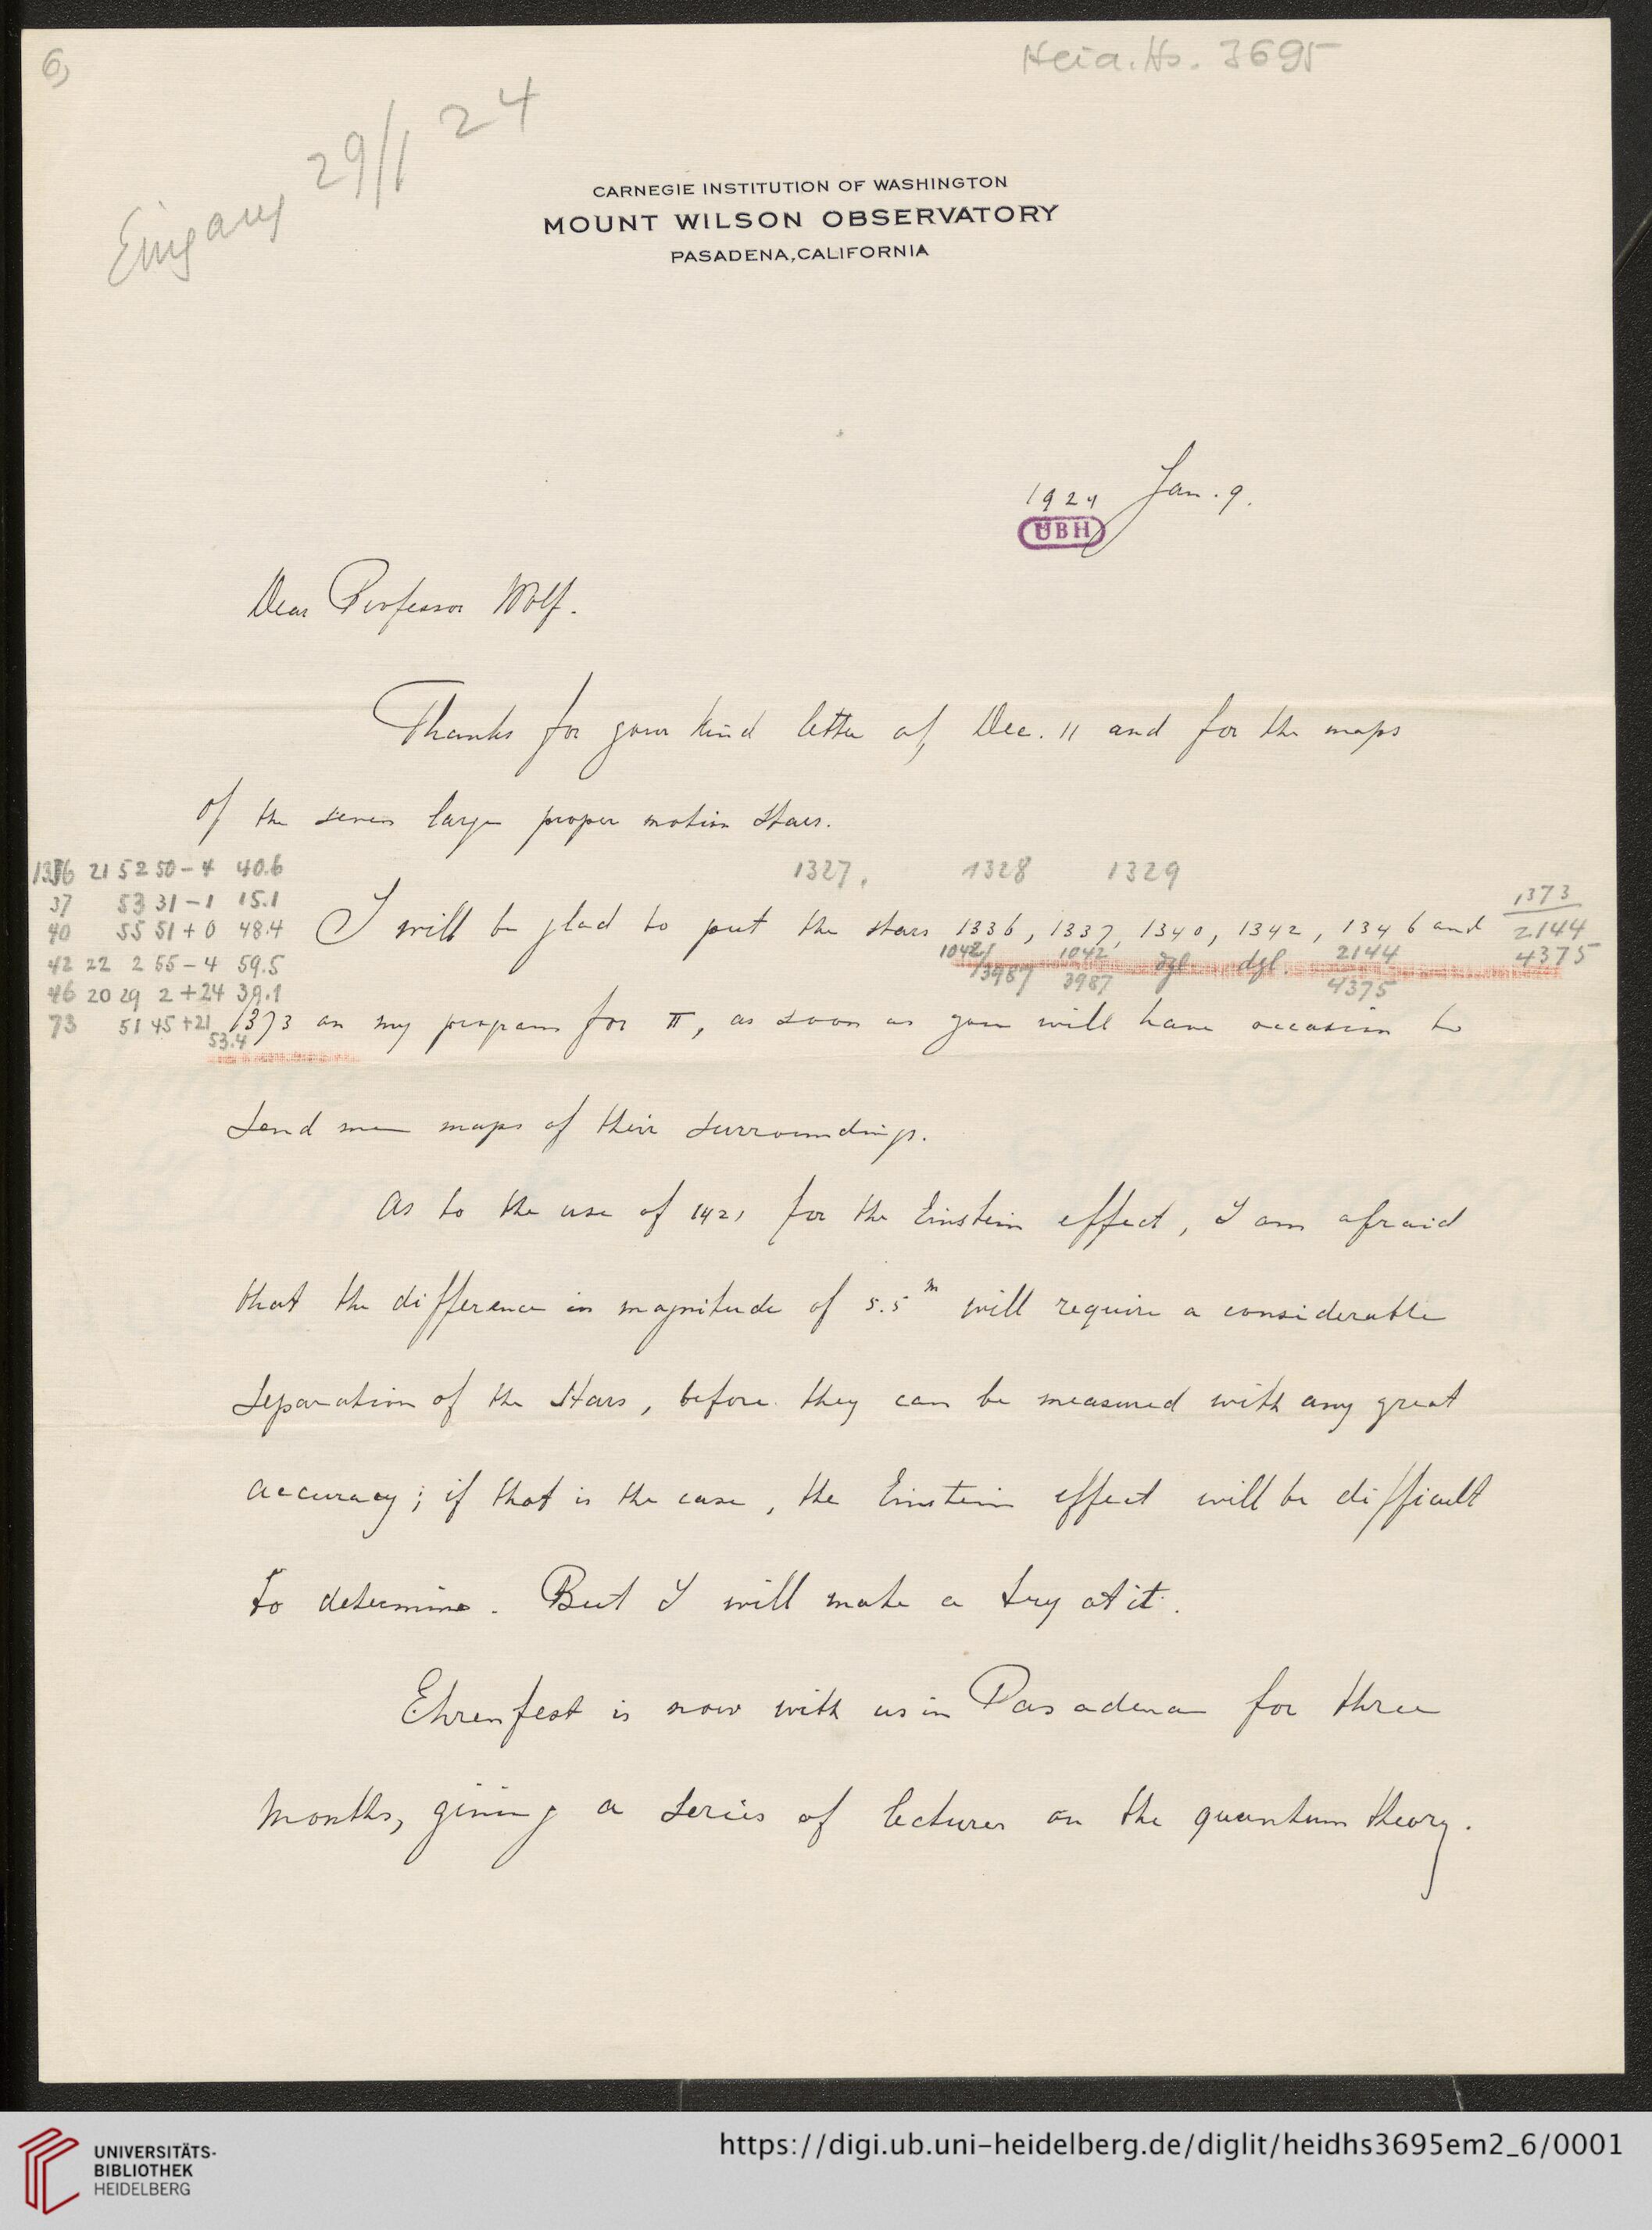 6)
Heid. Hs. 3695
Eingang 29/1 24
CARNEGIE INSTITUTION OF WASHINGTON
MOUNT WILSON OBSERVATORY
PASADENA, CALIFORNIA
1924 Jan. 9.
UBH
Dear Professor Wolf.
Thanks for your kind letter of Dec. 11 and for the maps
of the seven large proper motion stars.
1336 21 52 50 - 4 40.6
1327, 1328 1329
37 53 31 - 1 15.1
1373
40 55 51 + 0 48.4
I will be glad to put the stars 1336, 1337, 1340, 1342, 1346 and
2144
4375
42 22 2 55 - 4 59.5
1042/3987 1042 3987 dgl. dgl. 2144 4375
46 20 29 2 + 24 39.1
73 51 45 + 21 53.4
1373 on my program for π, as soon as you will have occasion to
send me maps of their surroundings.
As to the use of 1421 for the Einstein effect, I am afraid
that the difference in magnitude of 5.5m will require a considerable
separation of the stars, before they can be measured with any great
accuracy; if that is the case, the Einstein effect will be difficult
to determine. But I will make a try at it.
Ehrenfest is now with us in Pasadena for three
months, giving a series of lectures on the quantum theory.
UNIVERSITÄTS-
BIBLIOTHEK
HEIDELBERG
https://digi.ub.uni-heidelberg.de/diglit/heidhs3695em2_6/0001